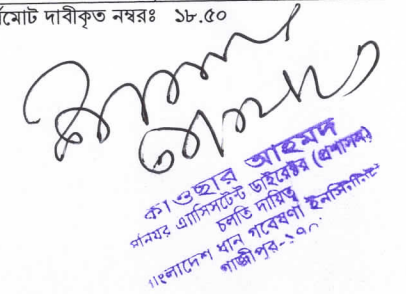 র্মোট দাবীকৃত নম্বরঃ ১৮.৫০
কাওছার আহমদ
সিনিয়র এ্যাসিসটেন্ট ডাইরেক্টর (প্রশাসন)
চলতি দায়িত্ব
বাংলাদেশ ধান গবেষণা ইনসিটিটিউট
গাজীপুর-১৭০